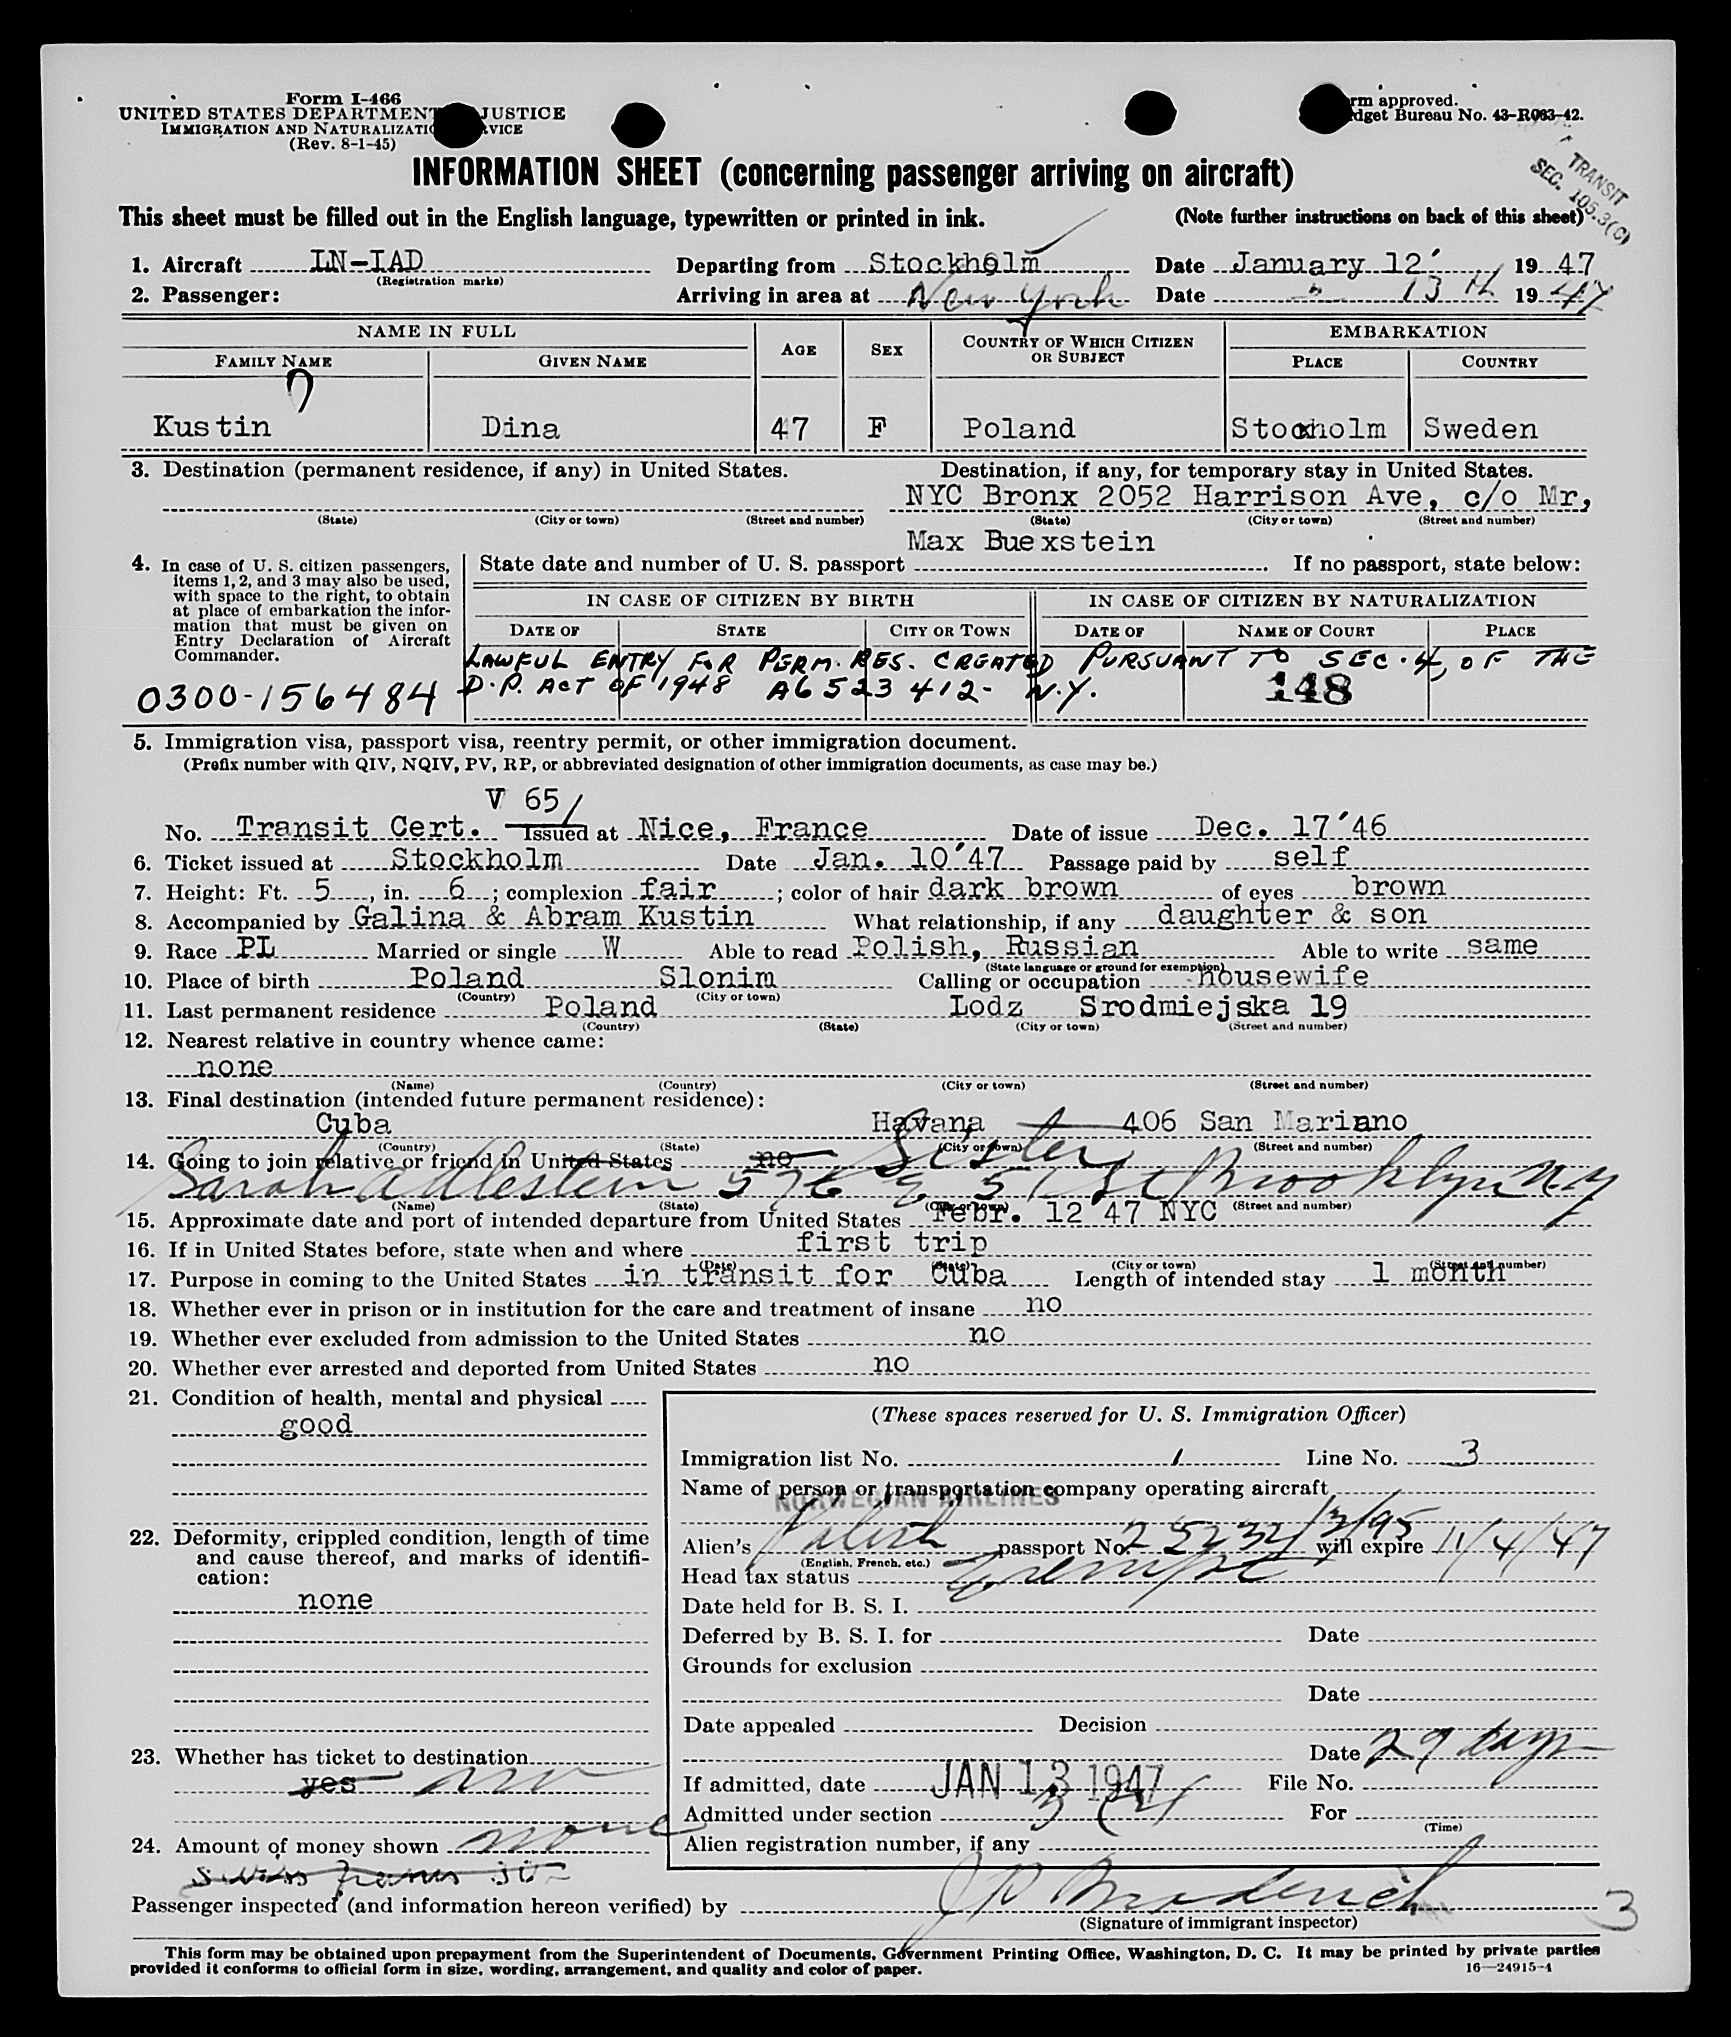 Form I-466
UNITED STATES DEPARTMENT JUSTICE
IMMIGRATION AND NATURALIZATION SERVICE
(Rev. 8-1-45)
Form approved.
Budget Bureau No. 43-R083-42.
TRANSIT
SEC. 105.3(C)
INFORMATION SHEET (concerning passenger arriving on aircraft)
This sheet must be filled out in the English language, typewritten or printed in ink. (Note further instructions on back of this sheet)
1. Aircraft LN-IAD Departing from Stockholm Date January 12' 1947
(Registration marks)
2. Passenger: Arriving in area at New York Date " 13th 1947
NAME IN FULL AGE SEX COUNTRY OF WHICH CITIZEN OR SUBJECT EMBARKATION
FAMILY NAME GIVEN NAME PLACE COUNTRY
Kustin Dina 47 F Poland Stockholm Sweden
3. Destination (permanent residence, if any) in United States. Destination, if any, for temporary stay in United States.
NYC Bronx 2052 Harrison Ave, c/o Mr,
(State) (City or town) (Street and number) (State) (City or town) (Street and number)
Max Buexstein
4. In case of U. S. citizen passengers, items 1, 2, and 3 may also be used, with space to the right, to obtain at place of embarkation the information that must be given on Entry Declaration of Aircraft Commander.
State date and number of U. S. passport If no passport, state below:
IN CASE OF CITIZEN BY BIRTH IN CASE OF CITIZEN BY NATURALIZATION
DATE OF STATE CITY OR TOWN DATE OF NAME OF COURT PLACE
LAWFUL ENTRY FOR PERM. RES. CREATED PURSUANT TO SEC. 4, OF THE
0300-156484 D.P. ACT OF 1948 A6 523 412- N.Y. 148
5. Immigration visa, passport visa, reentry permit, or other immigration document.
(Prefix number with QIV, NQIV, PV, RP, or abbreviated designation of other immigration documents, as case may be.)
V 65/
No. Transit Cert. Issued at Nice, France Date of issue Dec. 17'46
6. Ticket issued at Stockholm Date Jan. 10'47 Passage paid by self
7. Height: Ft. 5, in. 6; complexion fair; color of hair dark brown of eyes brown
8. Accompanied by Galina & Abram Kustin What relationship, if any daughter & son
9. Race PL Married or single W Able to read Polish, Russian Able to write same
(State language or ground for exemption)
10. Place of birth Poland Slonim Calling or occupation housewife
(Country) (City or town)
11. Last permanent residence Poland Lodz Srodmiejska 19
(Country) (State) (City or town) (Street and number)
12. Nearest relative in country whence came:
none
(Name) (Country) (City or town) (Street and number)
13. Final destination (intended future permanent residence):
Cuba Havana 406 San Mariano
(Country) (State) (City or town) (Street and number)
14. Going to join relative or friend in United States no Sister
Sarah Adlestein 576 E 51 St Brooklyn NY
(Name) (State) (City or town) (Street and number)
15. Approximate date and port of intended departure from United States Febr. 12 47 NYC
16. If in United States before, state when and where first trip
(Date) (State) (City or town) (Street and number)
17. Purpose in coming to the United States in transit for Cuba Length of intended stay 1 month
18. Whether ever in prison or in institution for the care and treatment of insane no
19. Whether ever excluded from admission to the United States no
20. Whether ever arrested and deported from United States no
21. Condition of health, mental and physical
good
22. Deformity, crippled condition, length of time and cause thereof, and marks of identification:
none
23. Whether has ticket to destination
yes no
24. Amount of money shown none
(These spaces reserved for U. S. Immigration Officer)
Immigration list No. 1 Line No. 3
Name of person or transportation company operating aircraft
NORWEGIAN AIRLINES
Alien's Polish passport No. 25232/3/95 will expire 11/4/47
(English, French, etc.)
Head tax status Exempt
Date held for B. S. I.
Deferred by B. S. I. for Date
Grounds for exclusion
Date
Date appealed Decision
Date 29 days
If admitted, date JAN 13 1947 File No.
Admitted under section 3 (3) For
(Time)
Alien registration number, if any
Passenger inspected (and information hereon verified) by
(Signature of immigrant inspector)
3
This form may be obtained upon prepayment from the Superintendent of Documents, Government Printing Office, Washington, D. C. It may be printed by private parties
provided it conforms to official form in size, wording, arrangement, and quality and color of paper. 16—24915-1